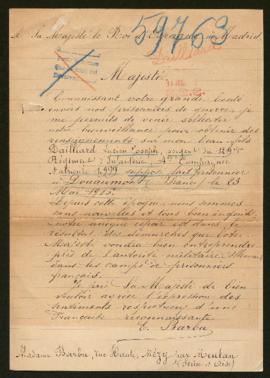 A Sa Majesté le Roi d'Espagne à Madrid
59763
Majesté
Connaissant votre grande bonté
envers nos prisonniers de guerre je
me permets de venir solliciter
votre bienveillance pour obtenir des
renseignements sur mon beau fils
Dailliard Lucien Joseph, sergent du
Régiment d'Infanterie, 4e Compagnie
Matricule fait prisonnier
à Douaumont (France) le 23
Mai
Depuis cette époque, nous sommes
sans nouvelles et tous bien
notre unique espoir est dans le
résultat des démarches que Votre
Majesté voudra bien entreprendre
près de l'autorité militaire
dans les camps de prisonniers
français.
Je prie Sa Majesté de bien
vouloir agréer l'expression des
sentiments respectueux d'une
Française reconnaissante
E. Barbu
Madame Barbu, rue Haute, Mézy par Meulan
(Seine et Oise)